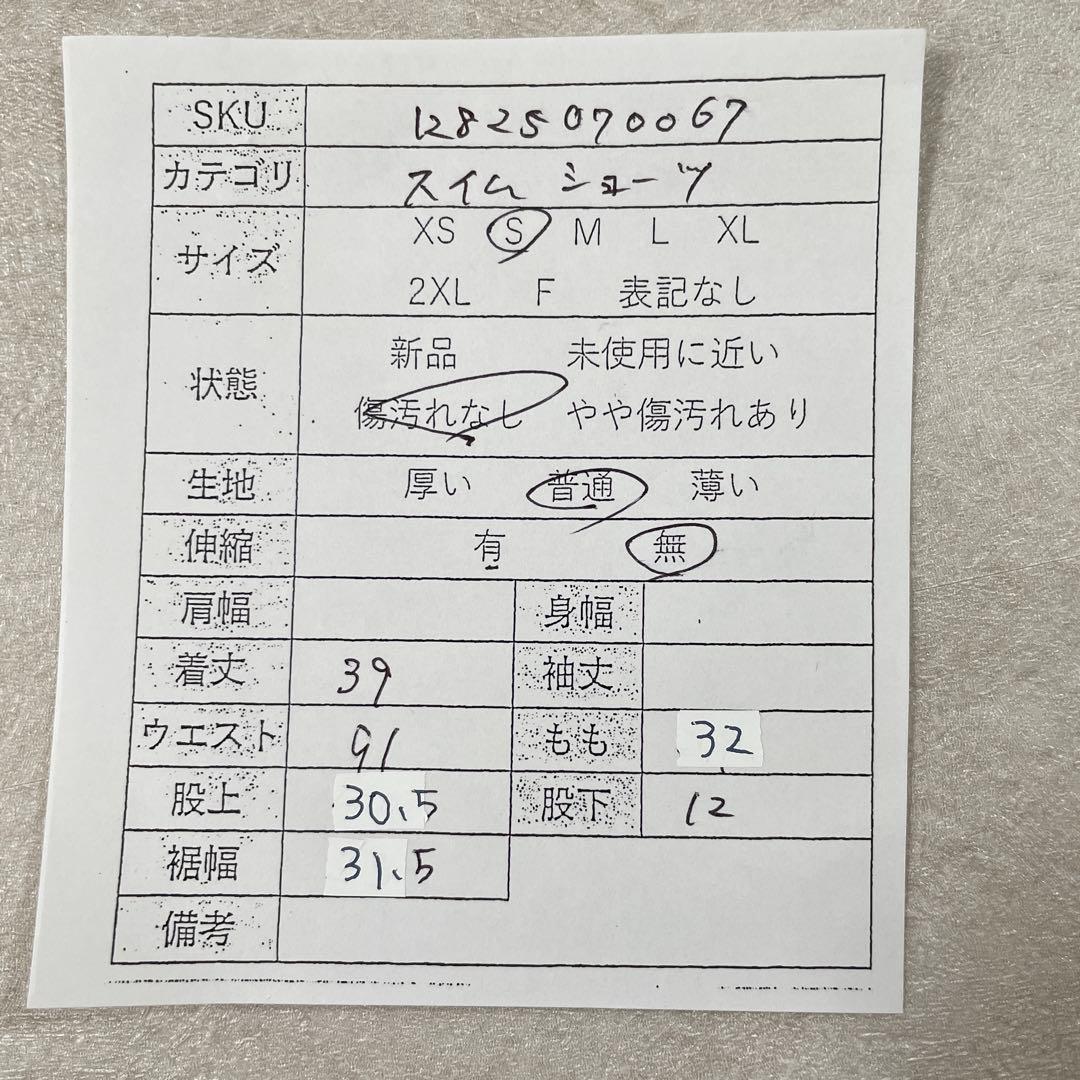 SKU 12825070067
カテゴリ スイム ショーツ
サイズ XS S M L XL
2XL F 表記なし
状態 新品 未使用に近い
傷汚れなし やや傷汚れあり
生地 厚い 普通 薄い
伸縮 有 無
肩幅 身幅
着丈 39 袖丈
ウエスト 91 もも 32
股上 30.5 股下 12
裾幅 31.5
備考